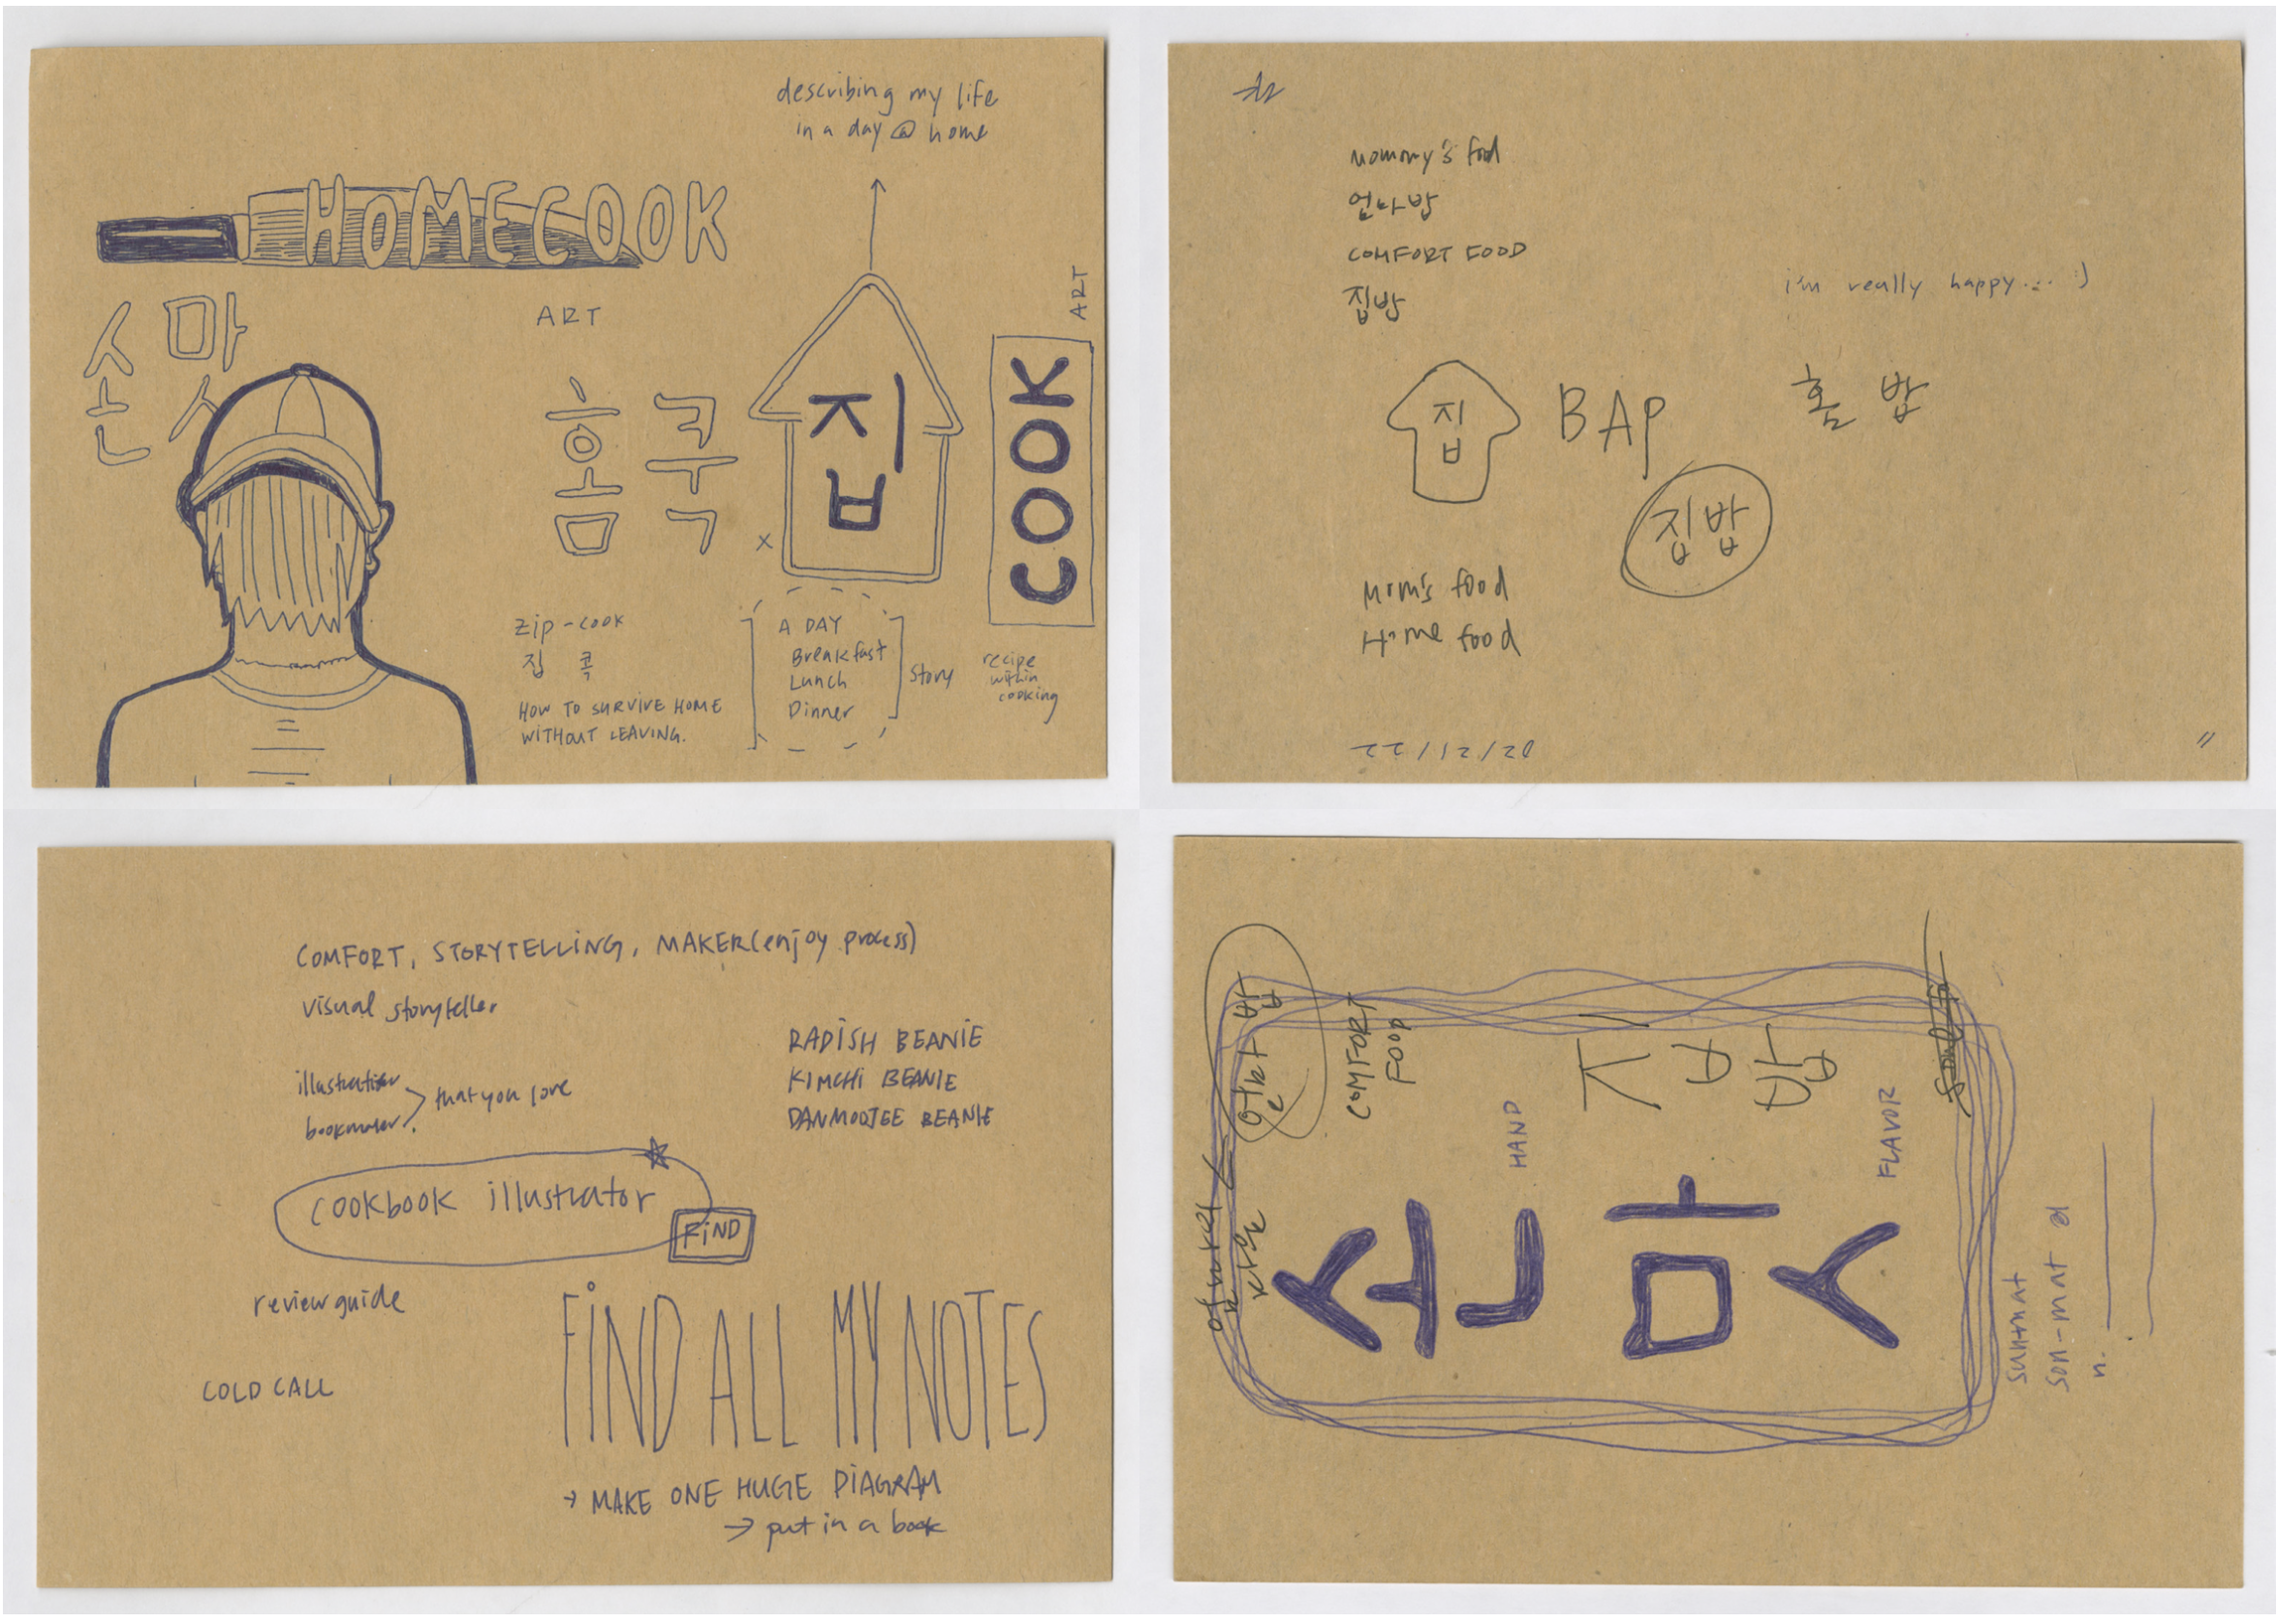 describing my life
in a day @ home
HOMECOOK
손맛
ART
홈쿡
집
COOK
ART
zip-cook
집 콕
HOW TO SURVIVE HOME
WITHOUT LEAVING.
A DAY
Breakfast
Lunch
Dinner
Story
recipe
within
cooking
mommy's food
엄마밥
COMFORT FOOD
집밥
i'm really happy... :)
집 BAP
홈 밥
집밥
Mom's food
Home food
22/12/20
COMFORT, STORYTELLING, MAKER(enjoy process)
visual storyteller
illustrator
bookmaker
that you love
RADISH BEANIE
KIMCHI BEANIE
DANMOOJEE BEANIE
cookbook illustrator
FIND
review guide
COLD CALL
FIND ALL MY NOTES
→ MAKE ONE HUGE DIAGRAM
→ put in a book
COMFORT
FOOD
집밥
HAND
FLAVOR
손맛
sunmat
son-mat
n.